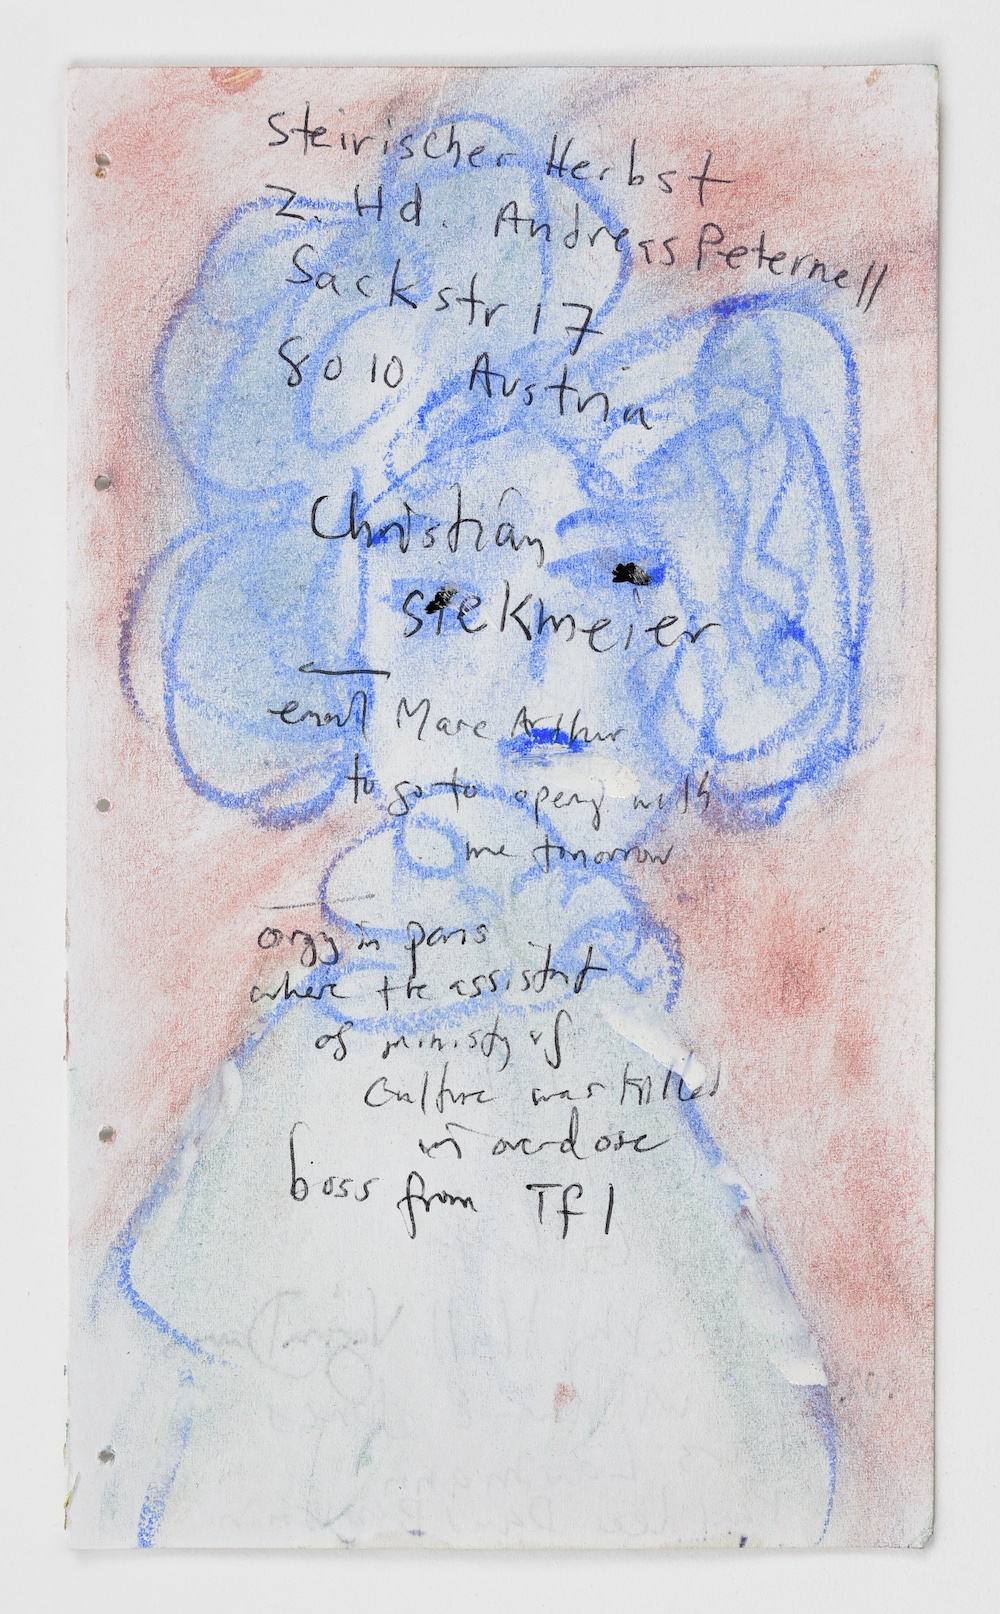 Steirischer Herbst
Z. Hd. Andreas Peternell
Sackstr 17
8010 Austria
Christian
Siekmeier
email Marc Arthur
to go to opening with
me tomorrow
orgy in paris
where the assistant
of ministy of
culture was killed
overdose
boss from Tf1